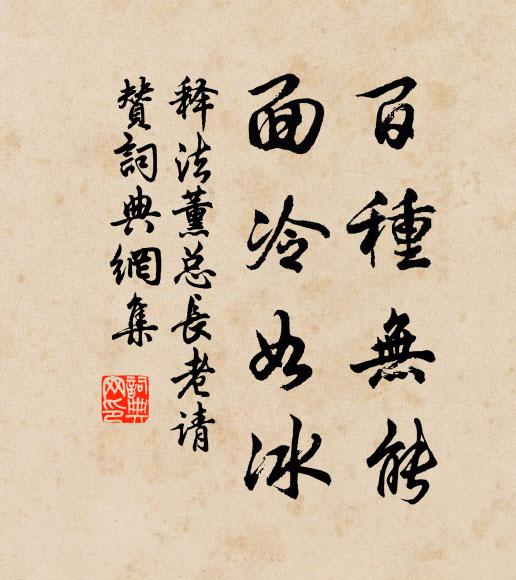 百種無能
面冷如冰
释法薰总長老请
贊詞典網集
詞典网印